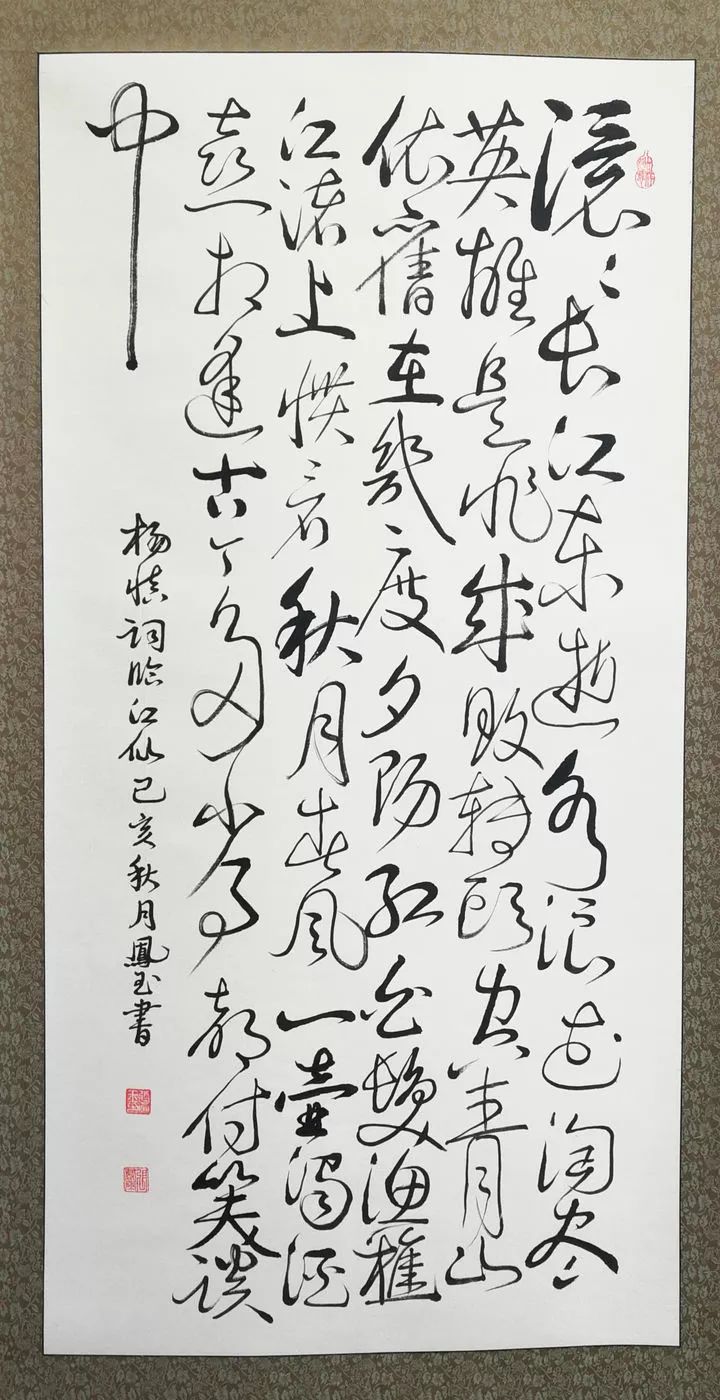 滚滚长江东逝水浪花淘尽
英雄是非成败转头空青山
依舊在幾度夕阳红白髮渔樵
江渚上惯看秋月春风一壶浊酒
喜相逢古今多少事都付笑谈
中
杨慎词临江仙己亥秋月鳳玉書